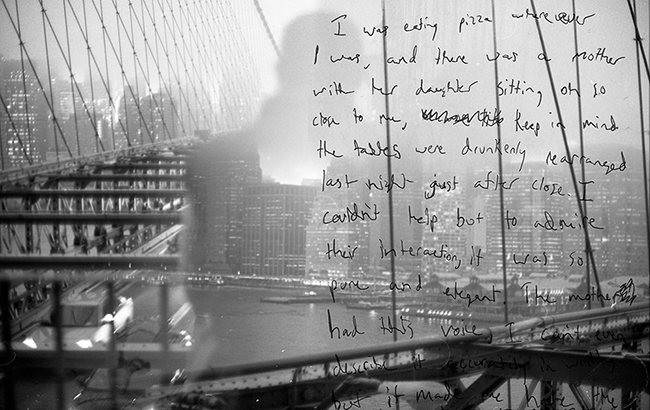 I was eating pizza whereever
I was, and there was a mother
with her daughter sitting oh so
close to me, Keep in mind
the tables were drunkenly rearranged
last night just after close. I
couldn't help but to admire
their interaction, it was so
pure and elegant. The mother
had this voice, I can't even
describe it accurately in writing
but it made me have the